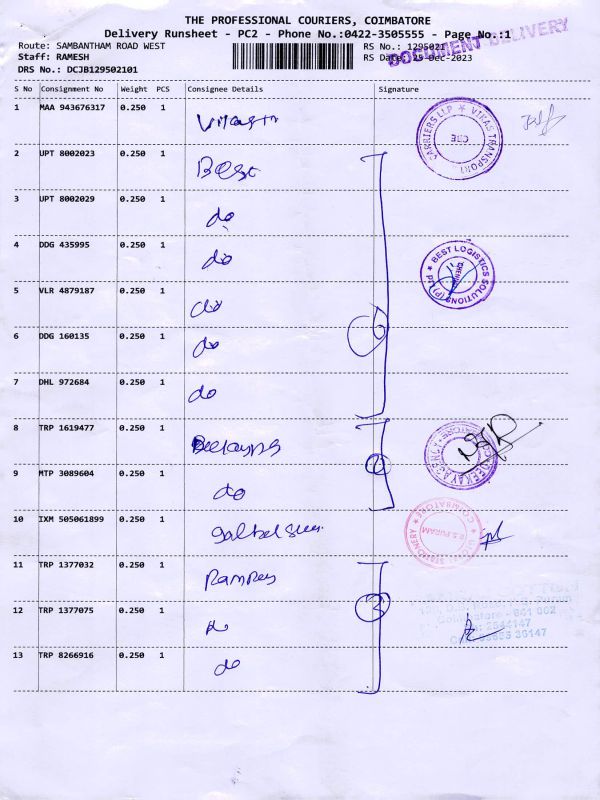 THE PROFESSIONAL COURIERS, COIMBATORE
Delivery Runsheet - PC2 - Phone No.:0422-3505555 - Page No.:1
Route: SAMBANTHAM ROAD WEST
RS No.: 1295021
Staff: RAMESH
RS Date: 29-Dec-2023
DOCUMENT DELIVERY
DRS No.: DCJB129502101
S No Consignment No Weight PCS Consignee Details Signature
1 MAA 943676317 0.250 1
VIKAS TRANSPORT CARRIERS LLP ★ CBE
2 UPT 8002023 0.250 1 Best
3 UPT 8002029 0.250 1 do
4 DDG 435995 0.250 1 do
★ BEST LOGISTICS SOLUTIONS (P) Ltd
5 VLR 4879187 0.250 1 do
6 DDG 160135 0.250 1 do
7 DHL 972684 0.250 1 do
8 TRP 1619477 0.250 1
9 MTP 3089604 0.250 1 do
10 IXM 505061899 0.250 1
STATIONERY ★ COIMBATORE ★ R.S.PURAM
11 TRP 1377032 0.250 1
12 TRP 1377075 0.250 1
Coimbatore - 641 002
13 TRP 8266916 0.250 1 do